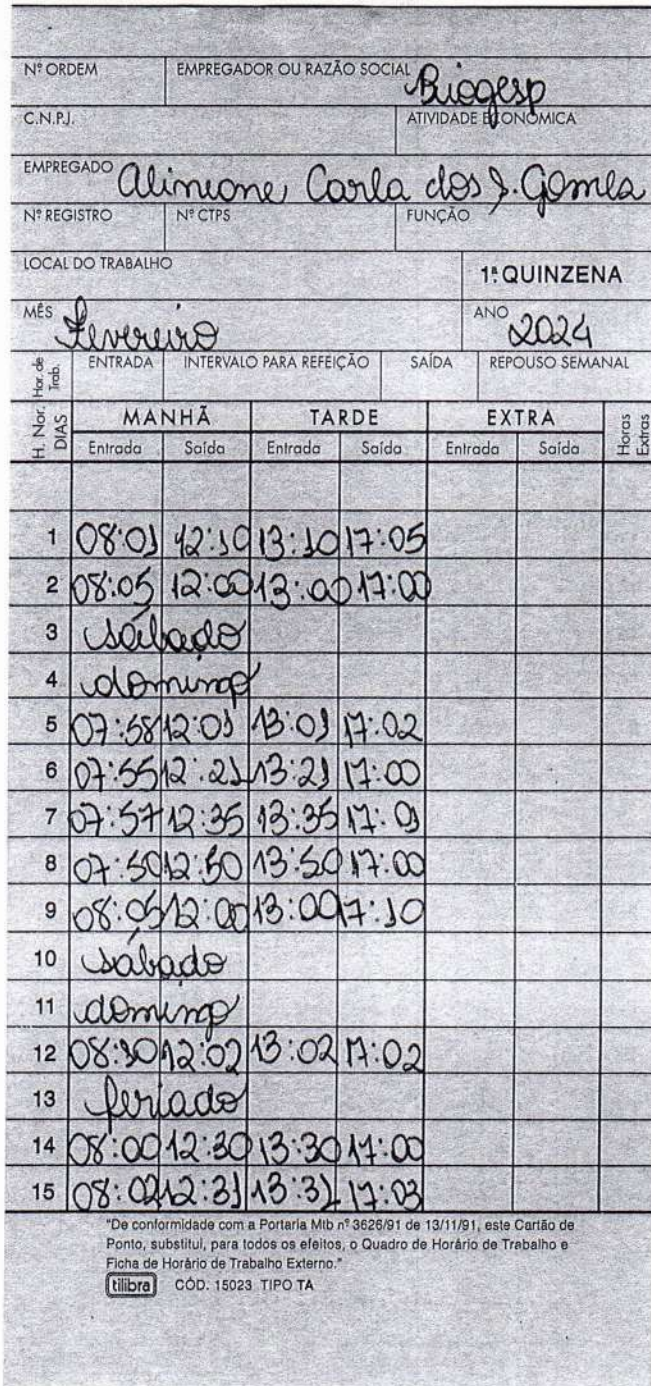 Nº ORDEM EMPREGADOR OU RAZÃO SOCIAL Biogesp
C.N.P.J. ATIVIDADE ECONÔMICA
EMPREGADO Alineone Carla dos S. Gomes
Nº REGISTRO Nº CTPS FUNÇÃO
LOCAL DO TRABALHO 1ª QUINZENA
MÊS Fevereiro ANO 2024
Hor. de Trab. ENTRADA INTERVALO PARA REFEIÇÃO SAÍDA REPOUSO SEMANAL
H. Nor. DIAS MANHÃ TARDE EXTRA Horas Extras
Entrada Saída Entrada Saída Entrada Saída
1 08:01 12:10 13:10 17:05
2 08:05 12:00 13:00 17:00
3 sábado
4 domingo
5 07:58 12:01 13:01 17:02
6 07:55 12:21 13:21 17:00
7 07:57 12:35 13:35 17:01
8 07:50 12:50 13:50 17:00
9 08:05 12:00 13:00 17:10
10 sábado
11 domingo
12 08:30 12:02 13:02 17:02
13 feriado
14 08:00 12:30 13:30 17:00
15 08:02 12:31 13:31 17:03
"De conformidade com a Portaria Mtb nº 3626/91 de 13/11/91, este Cartão de
Ponto, substitui, para todos os efeitos, o Quadro de Horário de Trabalho e
Ficha de Horário de Trabalho Externo."
tilibra CÓD. 15023 TIPO TA